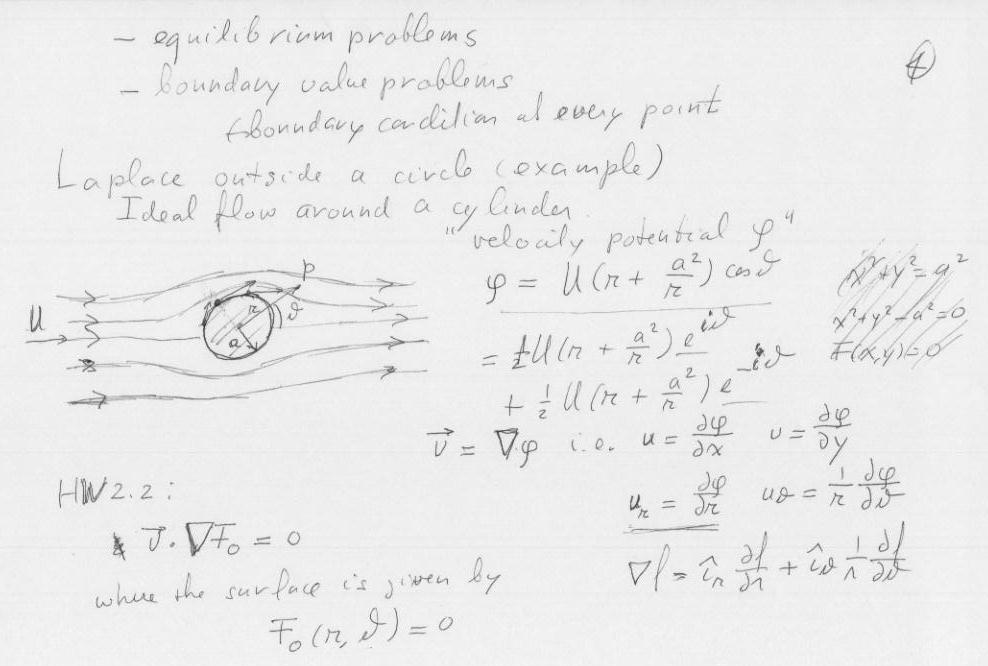 - equilibrium problems
④
- boundary value problems
boundary condition at every point
Laplace outside a circle (example)
Ideal flow around a cylinder.
"velocity potential φ"
φ = U(r + a²/r) cos ϑ
x² + y² = a²
x² + y² - a² = 0
F(x,y) = 0
U
p
r
ϑ
a
= ½U(r + a²/r) e^{iϑ}
+ ½ U(r + a²/r) e^{-iϑ}
v⃗ = ∇φ i.e. u = ∂φ/∂x v = ∂φ/∂y
u_r = ∂φ/∂r u_ϑ = 1/r ∂φ/∂ϑ
∇f = î_r ∂f/∂r + î_ϑ 1/r ∂f/∂ϑ
HW2.2:
v⃗ · ∇F₀ = 0
where the surface is given by
F₀(r, ϑ) = 0